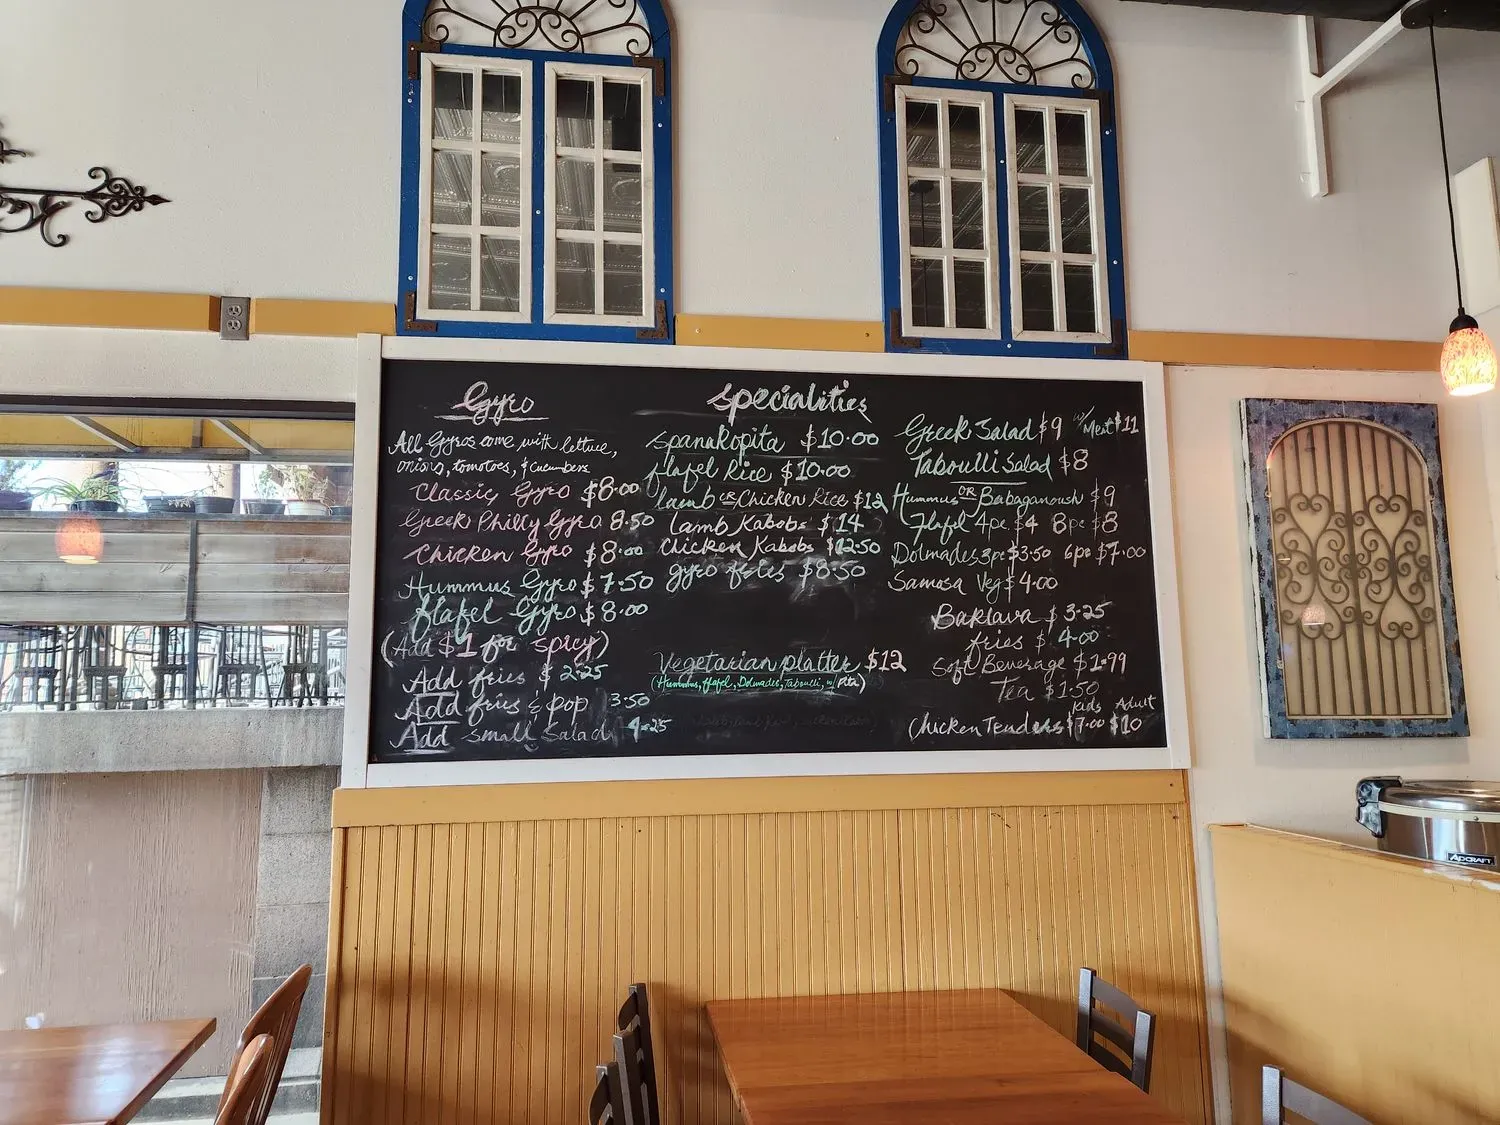 Gyro
All Gyros come with lettuce,
onions, tomatoes, & cucumbers
Classic Gyro $8.00
Greek Philly Gyro 8.50
Chicken Gyro $8.00
Hummus Gyro $7.50
flafel Gyro $8.00
(Add $1 for spicy)
Add fries $2.25
Add fries & pop 3.50
Add small Salad 4.25
Specialities
Spanakopita $10.00
flafel Rice $10.00
lamb OR Chicken Rice $12
Lamb Kabobs $14
Chicken Kabobs $12.50
gyro fries $8.50
Vegetarian platter $12
(Hummus, flafel, Dolmades, Taboulli, w/ pita)
Greek Salad $9 w/ Meat $11
Taboulli Salad $8
Hummus OR Babaganoush $9
Flafel 4pc $4 8pc $8
Dolmades 3pc $3.50 6pc $7.00
Samosa Veg $4.00
Baklava $3.25
fries $4.00
Soft Beverage $1.99
Tea $1.50
Kids Adult
Chicken Tenders $7.00 $10
ADCRAFT